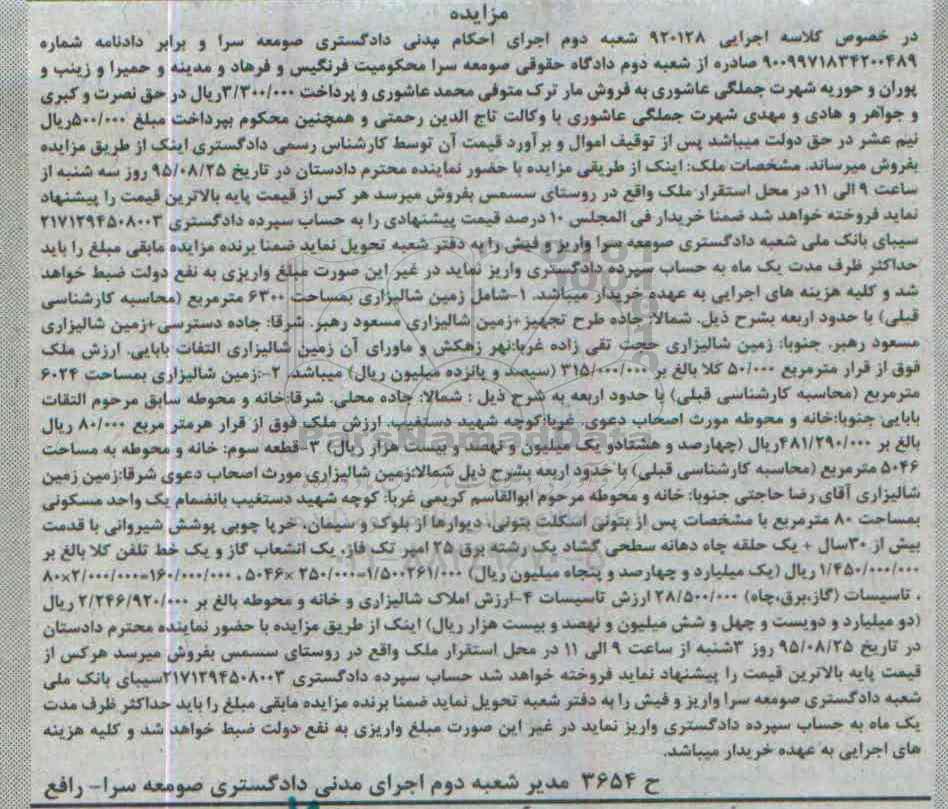 مزایده
در خصوص کلاسه اجرایی ۹۲۰۱۲۸ شعبه دوم اجرای احکام مدنی دادگستری صومعه سرا و برابر دادنامه شماره
۹۰۰۹۹۷۱۸۳۴۲۰۰۴۸۹ صادره از شعبه دوم دادگاه حقوقی صومعه سرا محکومیت فرنگیس و فرهاد و مدینه و حمیرا و زینب و
پوران و حوریه شهرت جملگی عاشوری به فروش مار ترک متوفی محمد عاشوری و پرداخت ۳/۳۰۰/۰۰۰ریال در حق نصرت و کبری
و جواهر و هادی و مهدی شهرت جملگی عاشوری با وکالت تاج الدین رحمتی و همچنین محکوم بپرداخت مبلغ ۵۰۰/۰۰۰ریال
نیم عشر در حق دولت میباشد پس از توقیف اموال و برآورد قیمت آن توسط کارشناس رسمی دادگستری اینک از طریق مزایده
بفروش میرساند. مشخصات ملک: اینک از طریقی مزایده با حضور نماینده محترم دادستان در تاریخ ۹۵/۰۸/۲۵ روز سه شنبه از
ساعت ۹ الی ۱۱ در محل استقرار ملک واقع در روستای سسمس بفروش میرسد هر کس از قیمت پایه بالاترین قیمت را پیشنهاد
نماید فروخته خواهد شد ضمنا خریدار فی المجلس ۱۰ درصد قیمت پیشنهادی را به حساب سپرده دادگستری ۲۱۷۱۲۹۴۵۰۸۰۰۳
سیبای بانک ملی شعبه دادگستری صومعه سرا واریز و فیش را به دفتر شعبه تحویل نماید ضمنا برنده مزایده مابقی مبلغ را باید
حداکثر ظرف مدت یک ماه به حساب سپرده دادگستری واریز نماید در غیر این صورت مبلغ واریزی به نفع دولت ضبط خواهد
شد و کلیه هزینه های اجرایی به عهده خریدار میباشد. ۱-شامل زمین شالیزاری بمساحت ۶۳۰۰ مترمربع (محاسبه کارشناسی
قبلی) با حدود اربعه بشرح ذیل. شمالا: جاده طرح تجهیز+زمین شالیزاری مسعود رهبر. شرقا: جاده دسترسی+زمین شالیزاری
مسعود رهبر. جنوبا: زمین شالیزاری حجت تقی زاده غربا:نهر زهکش و ماورای آن زمین شالیزاری التفات بابایی. ارزش ملک
فوق از قرار مترمربع ۵۰/۰۰۰ کلا بالغ بر ۳۱۵/۰۰۰/۰۰۰ (سیصد و پانزده میلیون ریال) میباشد. ۲-:زمین شالیزاری بمساحت ۶۰۲۴
مترمربع (محاسبه کارشناسی قبلی) با حدود اربعه به شرح ذیل : شمالا: جاده محلی. شرقا:خانه و محوطه سابق مرحوم التفات
بابایی جنوبا:خانه و محوطه مورث اصحاب دعوی. غربا:کوچه شهید دستغیب. ارزش ملک فوق از قرار هرمتر مربع ۸۰/۰۰۰ ریال
بالغ بر ۴۸۱/۲۹۰/۰۰۰ریال (چهارصد و هشتادو یک میلیون و نهصد و بیست هزار ریال) ۳-قطعه سوم: خانه و محوطه به مساحت
۵۰۴۶ مترمربع (محاسبه کارشناسی قبلی) با حدود اربعه بشرح ذیل شمالا:زمین شالیزاری مورث اصحاب دعوی شرقا:زمین زمین
شالیزاری آقای رضا حاجتی جنوبا: خانه و محوطه مرحوم ابوالقاسم کریمی غربا: کوچه شهید دستغیب بانضمام یک واحد مسکونی
بمساحت ۸۰ مترمربع با مشخصات پس از بتونی اسکلت بتونی، دیوارها از بلوک و سیمان، خرپا چوبی پوشش شیروانی با قدمت
بیش از ۳۰سال + یک حلقه چاه دهانه سطحی گشاد یک رشته برق ۲۵ امپر تک فاز، یک انشعاب گاز و یک خط تلفن کلا بالغ بر
۱/۴۵۰/۰۰۰/۰۰۰ ریال (یک میلیارد و چهارصد و پنجاه میلیون ریال) ۵۰۴۶× ۲۵۰/۰۰۰=۱/۵۰۰۲۶۱/۰۰۰ ، ۸۰×۲/۰۰۰/۰۰۰=۱۶۰/۰۰۰/۰۰۰
، تاسیسات (گاز،برق،چاه) ۲۸/۵۰۰/۰۰۰ ارزش تاسیسات ۴-ارزش املاک شالیزاری و خانه و محوطه بالغ بر ۲/۲۴۶/۹۲۰/۰۰۰ ریال
(دو میلیارد و دویست و چهل و شش میلیون و نهصد و بیست هزار ریال) اینک از طریق مزایده با حضور نماینده محترم دادستان
در تاریخ ۹۵/۰۸/۲۵ روز ۳شنبه از ساعت ۹ الی ۱۱ در محل استقرار ملک واقع در روستای سسمس بفروش میرسد هرکس از
قیمت پایه بالاترین قیمت را پیشنهاد نماید فروخته خواهد شد حساب سپرده دادگستری ۲۱۷۱۲۹۴۵۰۸۰۰۳سیبای بانک ملی
شعبه دادگستری صومعه سرا واریز و فیش را به دفتر شعبه تحویل نماید ضمنا برنده مزایده مابقی مبلغ را باید حداکثر ظرف مدت
یک ماه به حساب سپرده دادگستری واریز نماید در غیر این صورت مبلغ واریزی به نفع دولت ضبط خواهد شد و کلیه هزینه
های اجرایی به عهده خریدار میباشد.
ح ۳۶۵۴ مدیر شعبه دوم اجرای مدنی دادگستری صومعه سرا- رافع
ParsNamadData